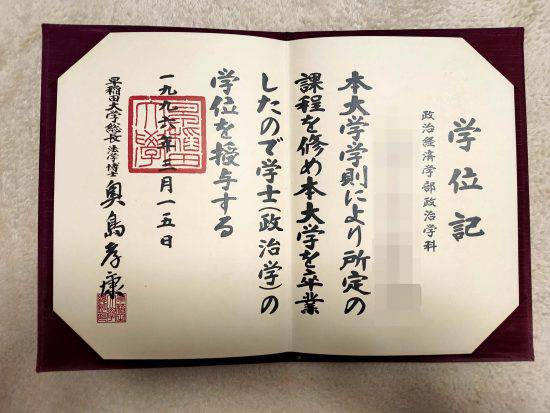 学位記
政治経済学部政治学科
本大学学則により所定の
課程を修め本大学を卒業
したので学士(政治学)の
学位を授与する
一九九六年三月一五日
早稲田大学総長 法学博士 奥島孝康
早稲田大学